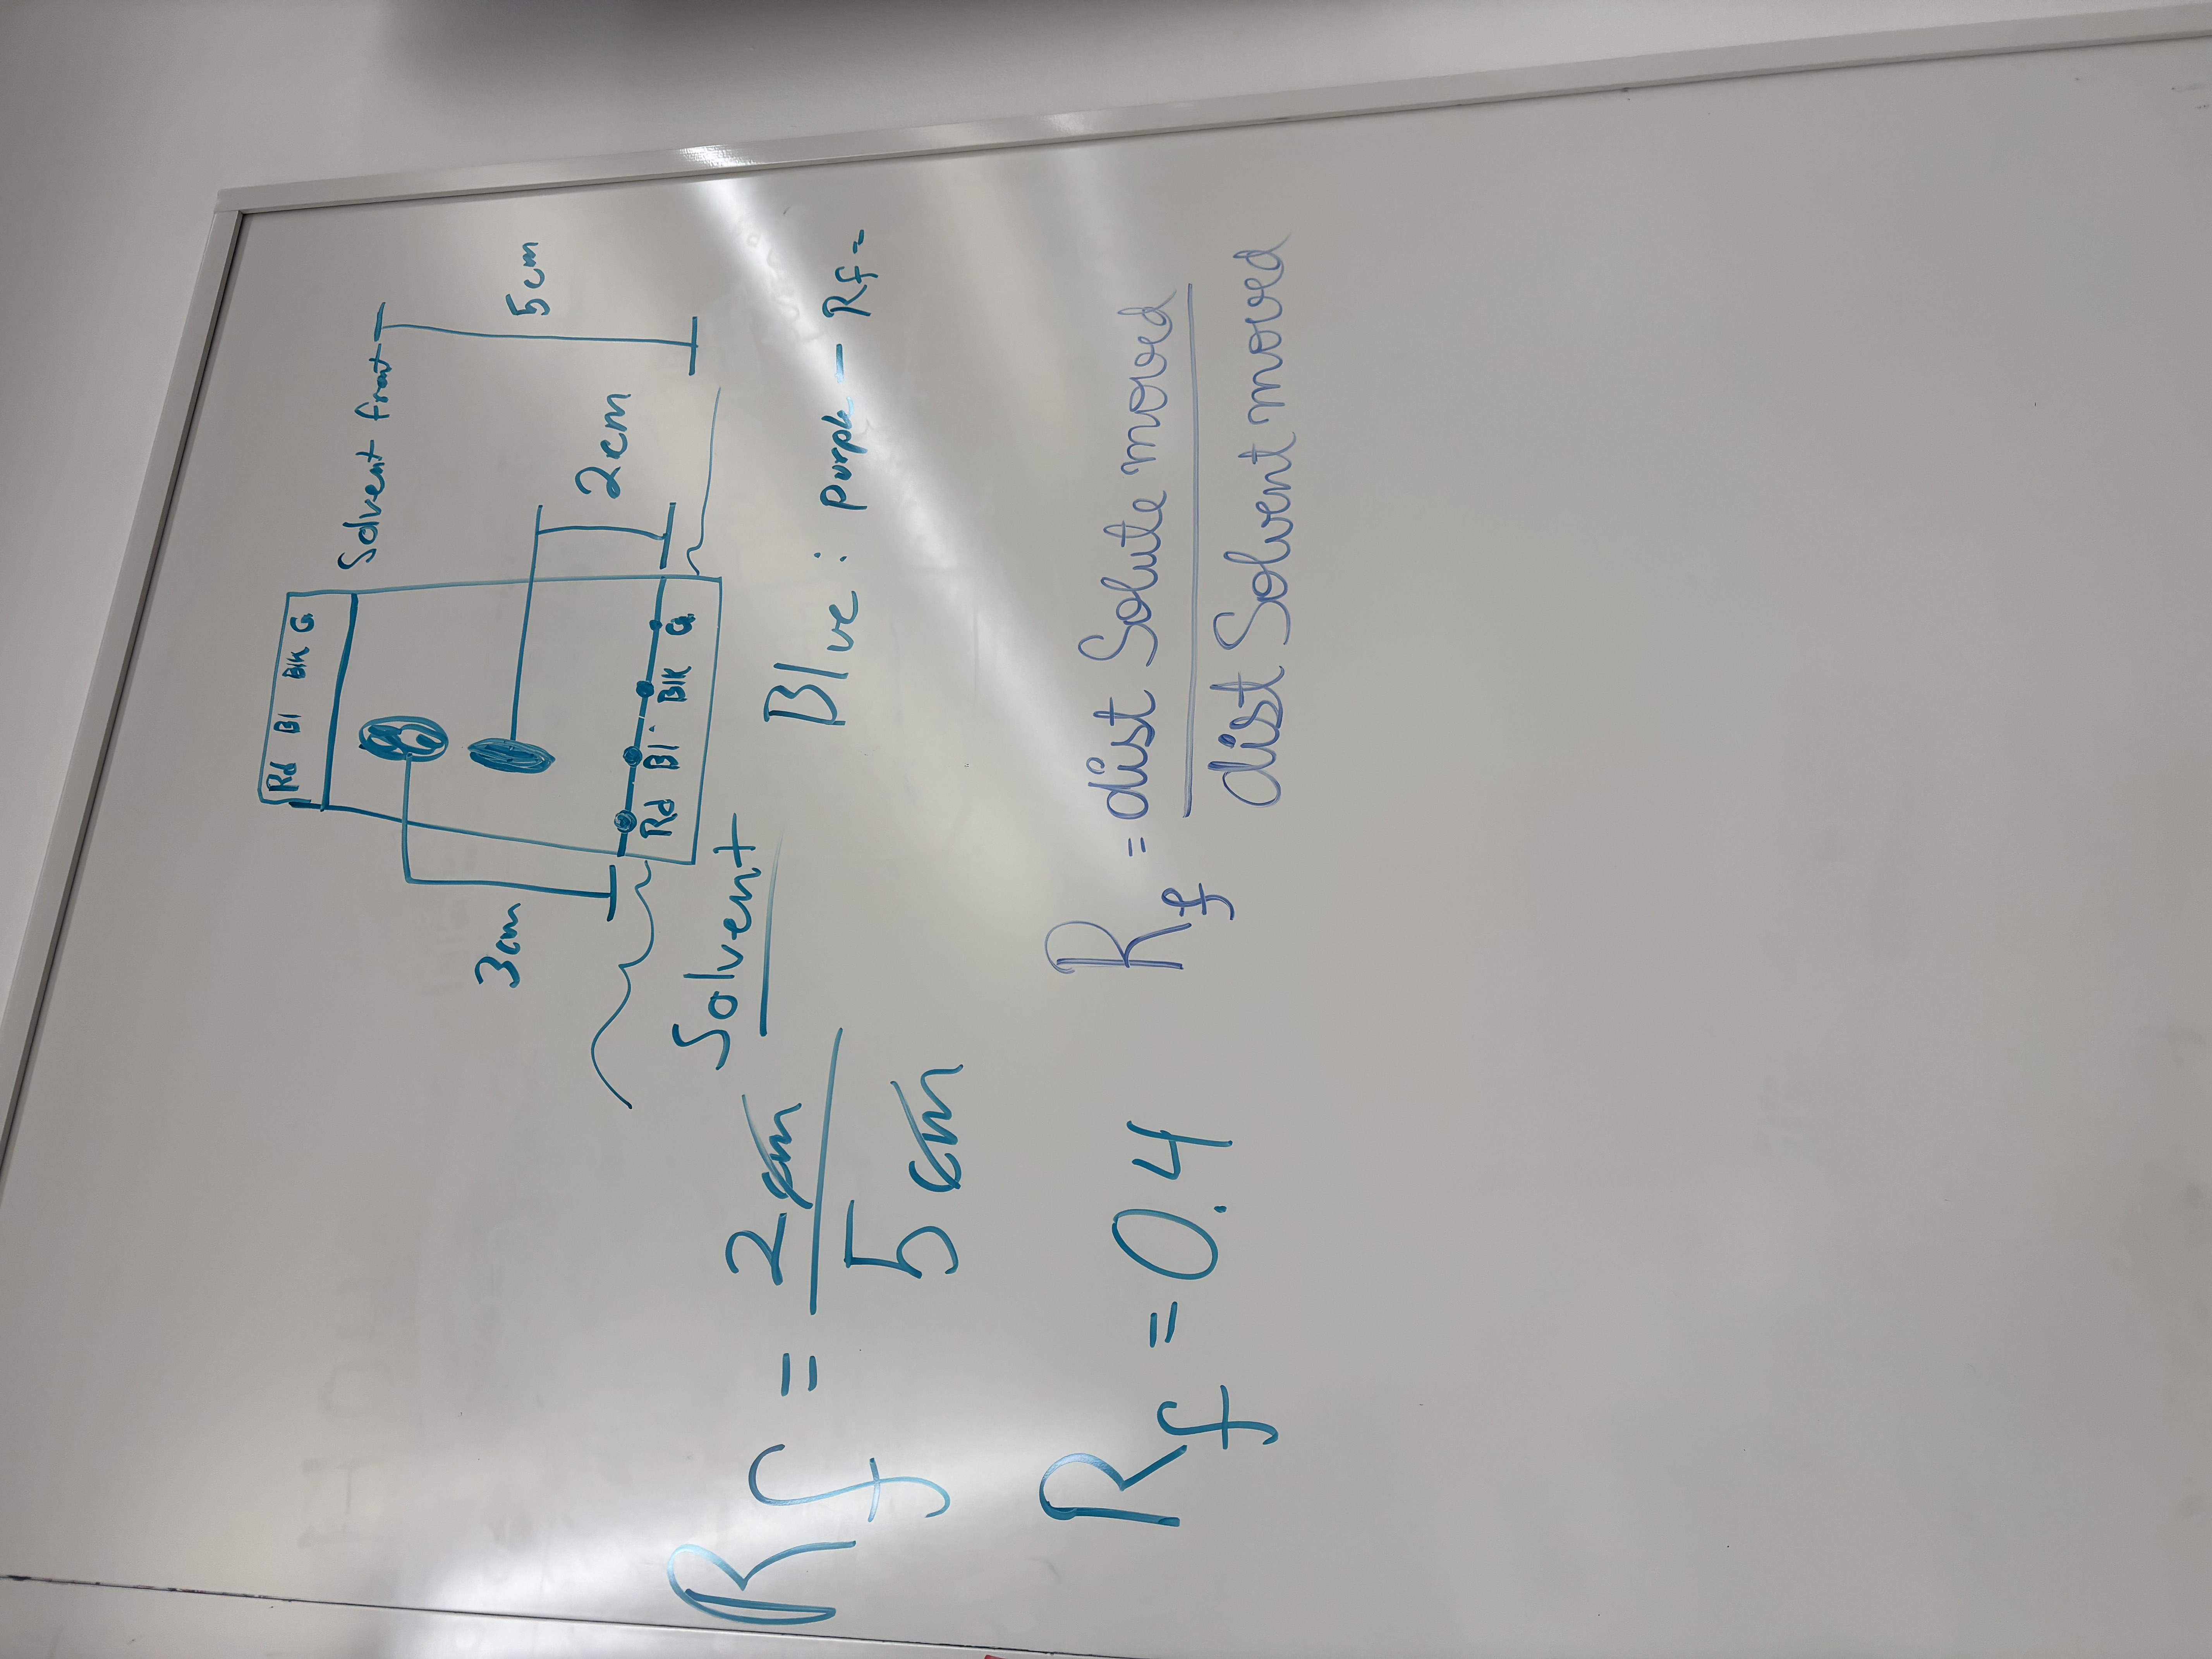 Rd Bl Blk G
Solvent front
3cm
5cm
2cm
Rd Bl Blk G
Solvent
Rf = 2cm
5cm
Blue: purple - Rf =
Rf = 0.4
Rf = dist Solute moved
dist Solvent moved